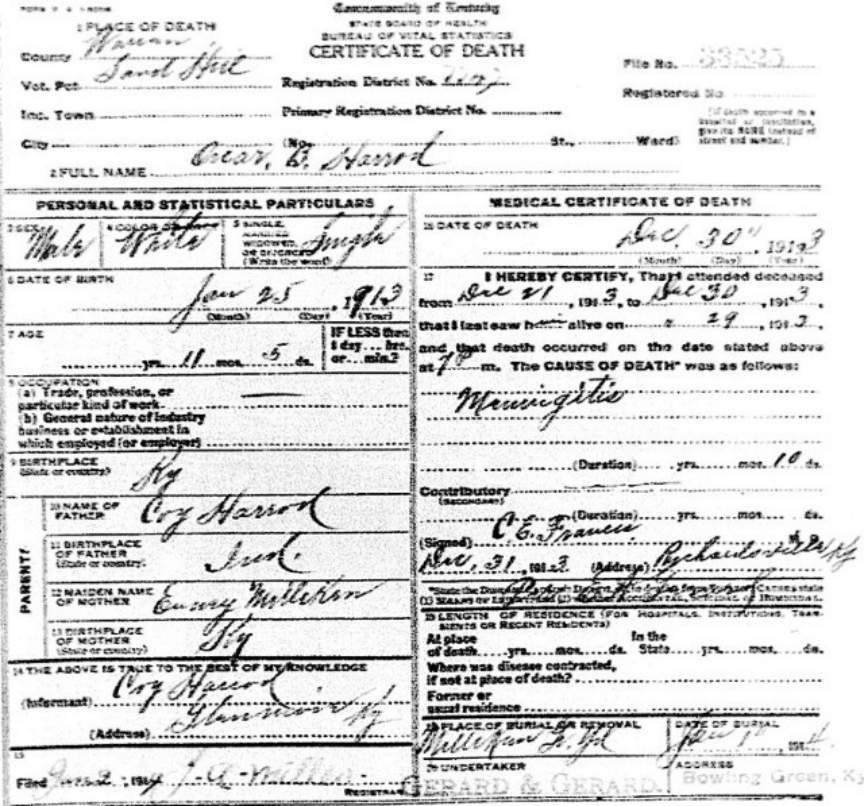 Commonwealth of Kentucky
STATE BOARD OF HEALTH
BUREAU OF VITAL STATISTICS
CERTIFICATE OF DEATH
1 PLACE OF DEATH
County Warren
Vot. Pct. Sand Hill
Registration District No.
File No. 33525
Registered No
Inc. Town
Primary Registration District No.
(If death occurred in a hospital or institution, give its NAME instead of street and number.)
City (No. St., Ward)
2 FULL NAME Oscar, B. Harrod
PERSONAL AND STATISTICAL PARTICULARS
3 SEX Male
4 COLOR OR RACE White
5 SINGLE, MARRIED WIDOWED, OR DIVORCED (Write the word) Single
6 DATE OF BIRTH
Jan 25, 1913
(Month) (Day) (Year)
7 AGE
yrs. 11 mos. 5 ds.
IF LESS than 1 day ... hrs. or ... min.?
8 OCCUPATION
(a) Trade, profession, or
particular kind of work
(b) General nature of industry
business or establishment in
which employed (or employer)
9 BIRTHPLACE
(State or country) Ky
PARENTS
10 NAME OF FATHER Coy Harrod
11 BIRTHPLACE OF FATHER (State or country) Ind.
12 MAIDEN NAME OF MOTHER Milliken
13 BIRTHPLACE OF MOTHER (State or country) Ky
14 THE ABOVE IS TRUE TO THE BEST OF MY KNOWLEDGE
(Informant) Coy Harrod
(Address) Ky
15
Filed 2, 1914 J. A. Miller
REGISTRAR
MEDICAL CERTIFICATE OF DEATH
16 DATE OF DEATH
Dec. 30", 1913
(Month) (Day) (Year)
17 I HEREBY CERTIFY, That I attended deceased
from Dec 21, 1913, to Dec 30, 1913,
that I last saw him alive on " 29, 1913,
and that death occurred on the date stated above
at 7 P m. The CAUSE OF DEATH* was as follows:
Meningitis
(Duration) yrs. mos. 10 ds.
Contributory
(SECONDARY)
(Duration) yrs. mos. ds.
(Signed) C. E. Francis M. D.
Dec, 31, 1913 (Address) Richardsville Ky
18 LENGTH OF RESIDENCE (FOR HOSPITALS, INSTITUTIONS, TRANSIENTS OR RECENT RESIDENTS)
At place In the
of death yrs. mos. ds. State yrs. mos. ds.
Where was disease contracted,
if not at place of death?
Former or
usual residence
19 PLACE OF BURIAL OR REMOVAL
Milliken G. Yd
DATE OF BURIAL
Jan 1", 1914
20 UNDERTAKER
GERARD & GERARD.
ADDRESS
Bowling Green, Ky